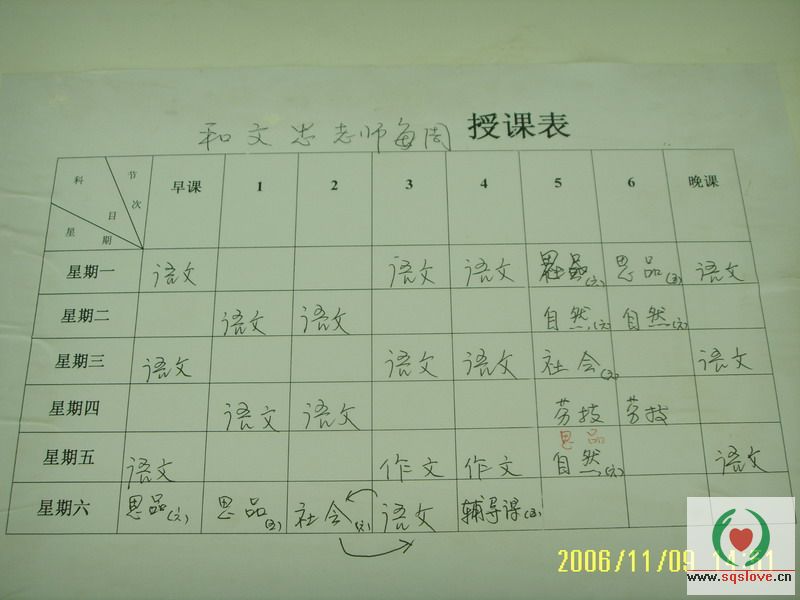 和文忠老师每周 授课表
科 目 节 次 星 期 早课 1 2 3 4 5 6 晚课
星期一 语文 语文 语文 思品(六) 思品(五) 语文
星期二 语文 语文 自然(六) 自然(六)
星期三 语文 语文 语文 社会 语文
星期四 语文 语文 劳技 劳技
思品
星期五 语文 作文 作文 自然(六) 语文
星期六 思品(六) 思品(五) 社会(六) 语文 辅导课(五)
2006/11/09
www.sqslove.cn